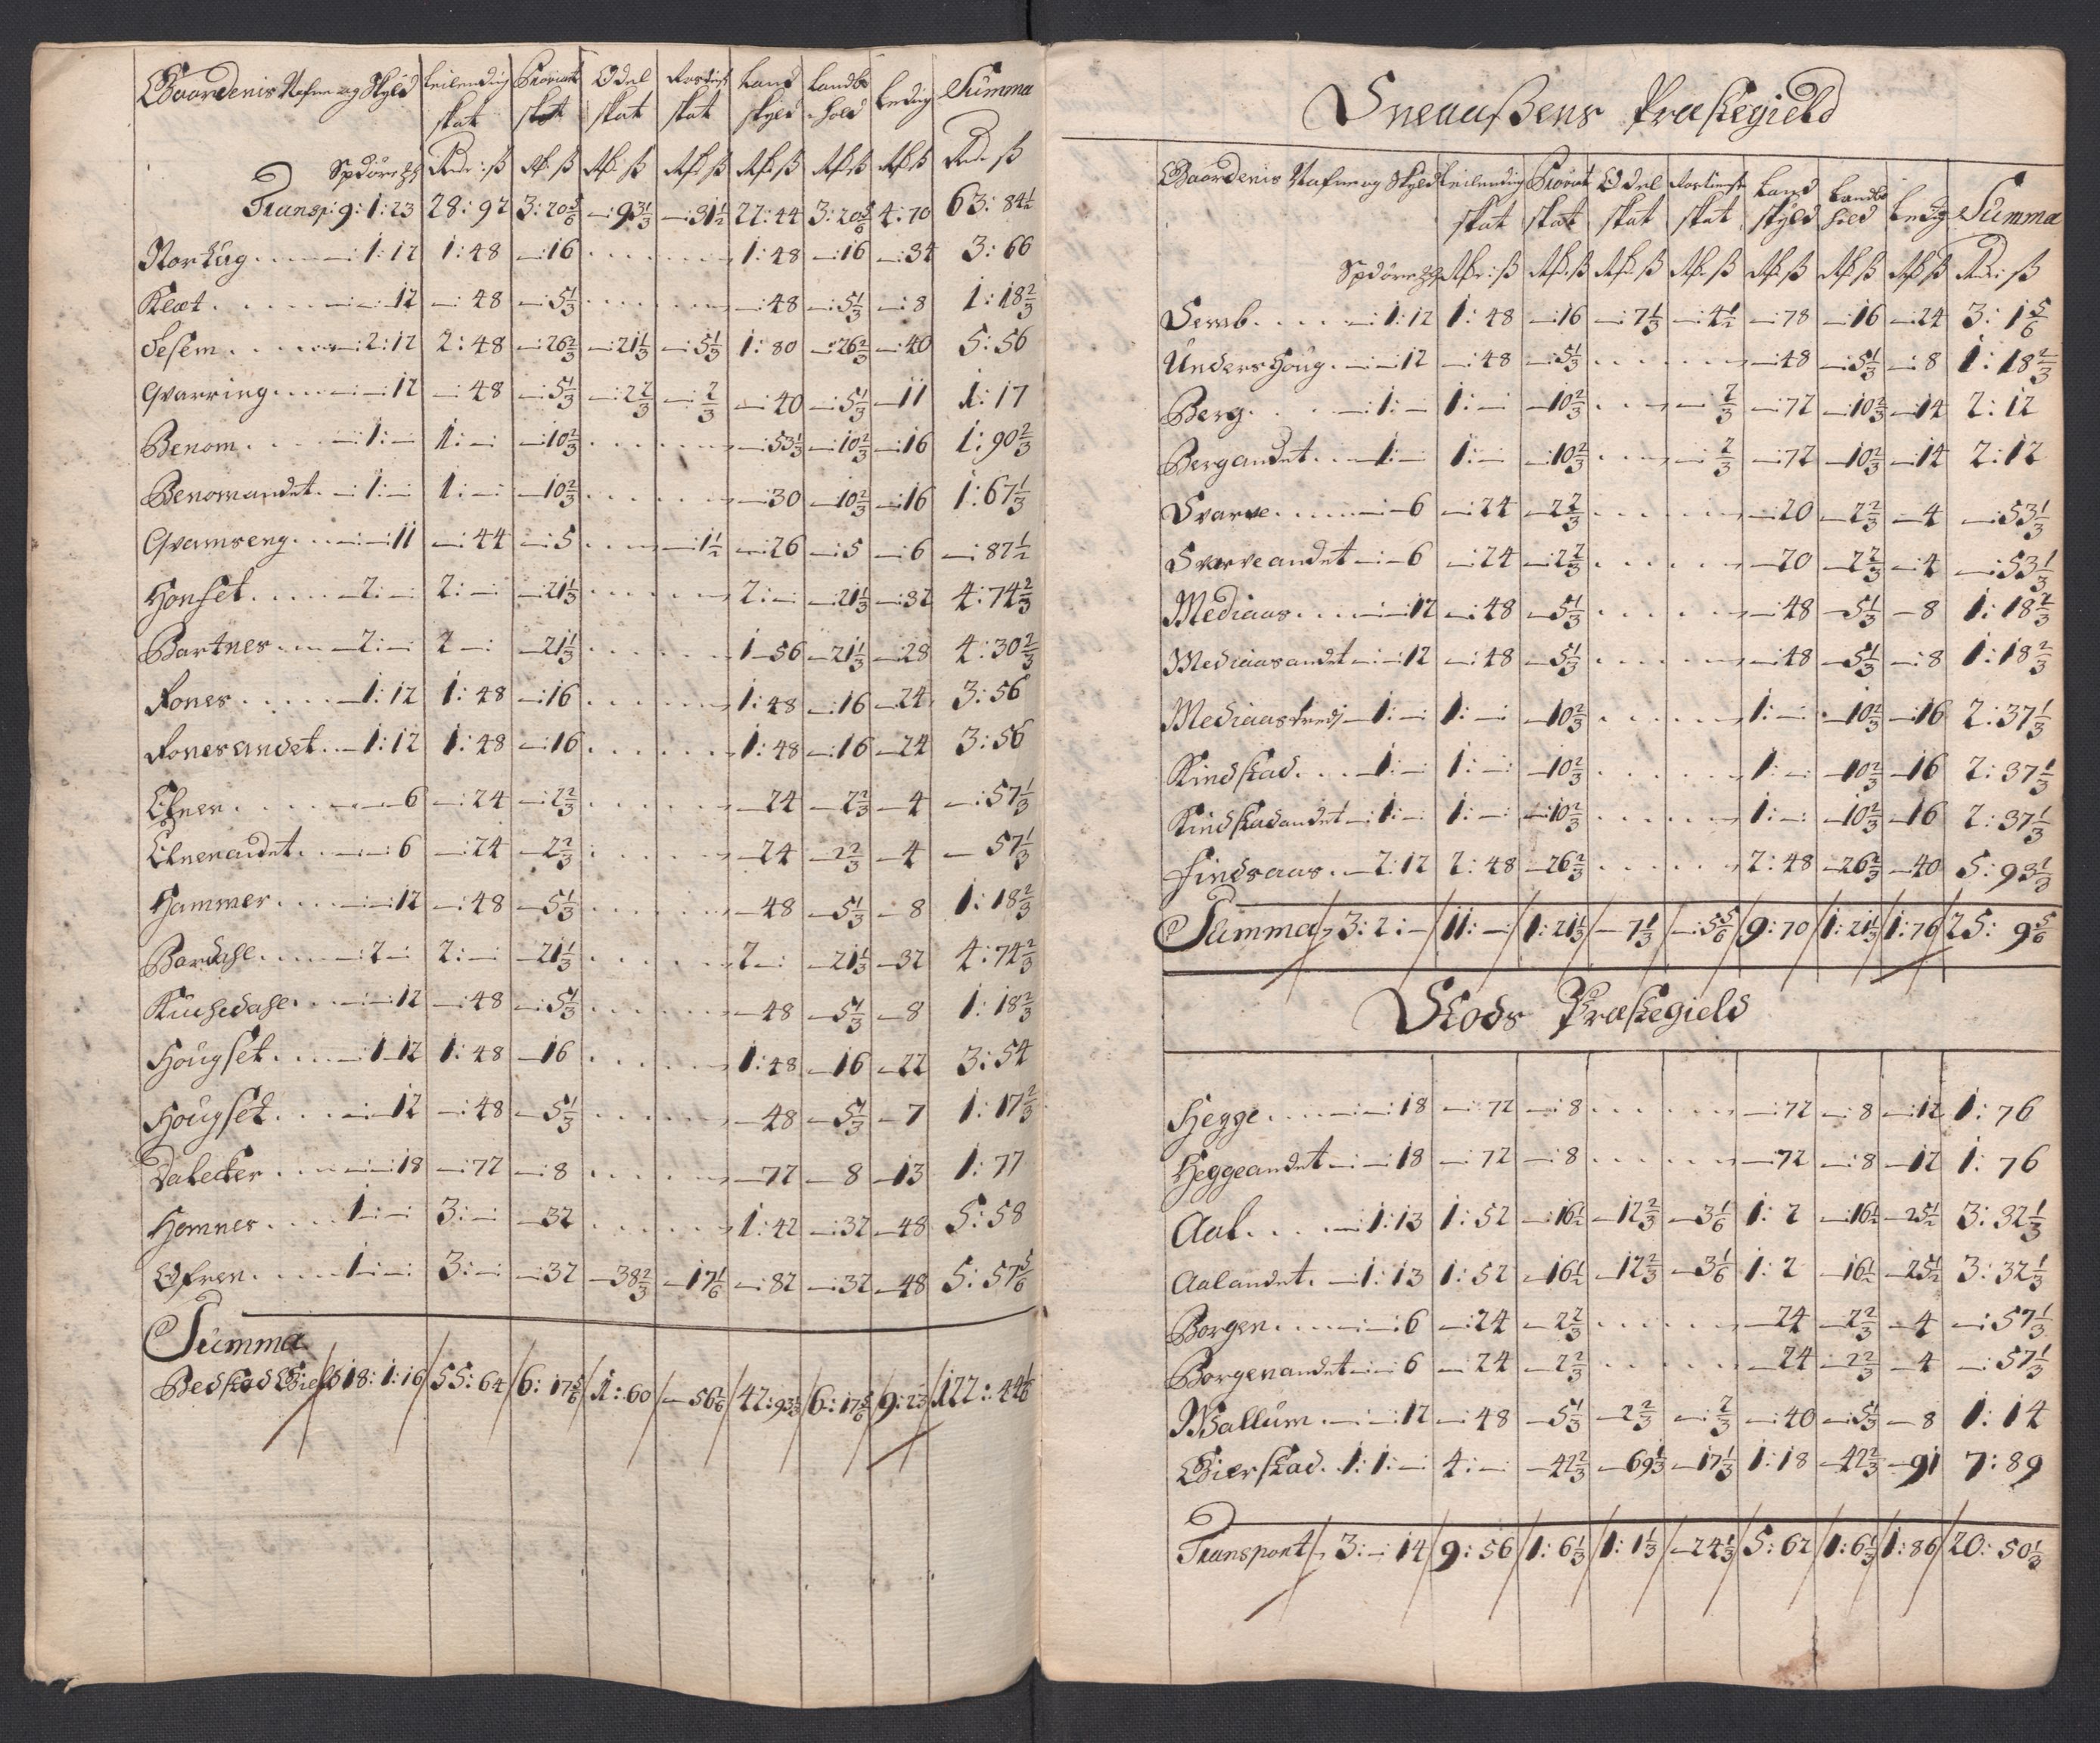 Gaardenis Nafne og Skyld Leilending skat Proviant skat Odel skat Rostieniste skat Land skyld Landbo hold Leding Summa
Spd öre Rdr: ß Rdr ß Rdr: ß Rdr ß Rdr ß Rdr ß Rdr ß Rdr ß
Transp: 9: 1: 23 28: 92 3: 20 5/6 —: 93 1/3 —: 31 1/2 22: 44 3: 20 5/6 4: 70 63: 84 1/2
—: 1: 12 1: 48 —: 16 1: 48 —: 16 —: 34 3: 66
Klæt —: 12 —: 48 —: 5 1/3 —: 48 —: 5 1/3 —: 8 1: 18 2/3
Sesem —: 2: 12 2: 48 —: 26 2/3 —: 21 1/3 —: 5 1/3 1: 80 —: 26 2/3 —: 40 5: 56
Qvarring —: —: 12 —: 48 —: 5 1/3 —: 2 2/3 —: 2/3 —: 40 —: 5 1/3 —: 11 1: 17
Benom —: 1: — 1: — —: 10 2/3 —: 53 1/3 —: 10 2/3 —: 16 1: 90 2/3
Benomandet —: 1: — 1: — —: 10 2/3 —: 30 —: 10 2/3 —: 16 1: 67 1/3
Qvamseng —: —: 11 —: 44 —: 5 —: 1 1/2 —: 26 —: 5 —: 6 —: 87 1/2
Honset —: 2: — 2: — —: 21 1/3 2: — —: 21 1/3 —: 32 4: 74 2/3
Bartnes —: 2: — 2 —: —: 21 1/3 1: 56 —: 21 1/3 —: 28 4: 30 2/3
Rones —: 1: 12 1: 48 —: 16 1: 48 —: 16 —: 24 3: 56
Ronesandet —: 1: 12 1: 48 —: 16 1: 48 —: 16 —: 24 3: 56
Elnen —: —: 6 —: 24 —: 2 2/3 —: 24 —: 2 2/3 —: 4 —: 57 1/3
Elnenandet —: —: 6 —: 24 —: 2 2/3 —: 24 —: 2 2/3 —: 4 — 57 1/3
Hammer —: —: 12 —: 48 —: 5 1/3 —: 48 —: 5 1/3 —: 8 1: 18 2/3
Bardahl —: 2: — 2: — —: 21 1/3 2: — —: 21 1/3 —: 32 4: 74 2/3
—: —: 12 —: 48 —: 5 1/3 —: 48 —: 5 1/3 —: 8 1: 18 2/3
Hougset —: 1: 12 1: 48 —: 16 1: 48 —: 16 —: 22 3: 54
Hougset —: 12 —: 48 —: 5 1/3 —: 48 —: 5 1/3 —: 7 1: 17 2/3
Dalecker —: —: 18 —: 72 —: 8 —: 72 —: 8 —: 13 1: 77
Hemnes 1: —: — 3: — —: 32 1: 42 —: 32 —: 48 5: 58
Ofren 1: —: — 3: — —: 32 —: 38 2/3 —: 17 1/6 —: 82 —: 32 —: 48 5: 57 5/6
Summa
Bedstad Gield 18: 1: 16 55: 64 6: 17 5/6 1: 60 — 56 1/6 42: 93 1/3 6: 17 5/6 9: 23 122: 44 1/6
Sneaaßens Præstegield
Gaardenis Nafne og Skyld Leilending skat Proviant skat Odel skat Rostieniste skat Land skyld Landbo hold Leding Summa
Spd öre Rdr: ß Rdr: ß Rdr ß Rdr ß Rdr ß Rdr ß Rdr ß Rdr: ß
Semb —: 1: 12 1: 48 —: 16 —: 7 1/3 —: 4 1/2 —: 78 —: 16 —: 24 3: 1 5/6
Undershoug —: —: 12 —: 48 —: 5 1/3 —: 48 —: 5 1/3 —: 8 1: 18 2/3
Berg —: 1: — 1: — —: 10 2/3 —: 2/3 —: 72 —: 10 2/3 —: 14 2: 12
Bergandet —: 1: — 1: — —: 10 2/3 —: 2/3 —: 72 —: 10 2/3 —: 14 2: 12
Svarve —: —: 6 —: 24 —: 2 2/3 —: 20 —: 2 2/3 —: 4 —: 53 1/3
Svarveandet —: —: 6 —: 24 —: 2 2/3 —: 20 —: 2 2/3 —: 4 —: 53 1/3
Mediaas —: —: 12 —: 48 —: 5 1/3 —: 48 —: 5 1/3 —: 8 1: 18 2/3
Mediaasandet —: —: 12 —: 48 —: 5 1/3 —: 48 —: 5 1/3 —: 8 1: 18 2/3
Mediaastredj —: 1: — 1: — —: 10 2/3 1: — —: 10 2/3 —: 16 2: 37 1/3
Kindstad —: 1: — 1: — —: 10 2/3 1: — —: 10 2/3 —: 16 2: 37 1/3
Kindstadandet —: 1: — 1: — —: 10 2/3 1: — —: 10 2/3 —: 16 2: 37 1/3
Findsaas —: 2: 12 2: 48 —: 26 2/3 2: 48 —: 26 2/3 —: 40 5: 93 1/3
Summa 3: 2: — 11: — 1: 21 1/3 — 7 1/3 —: 5 5/6 9: 70 1: 21 1/3 1: 76 25: 9 5/6
Stods Præstegield
Hegge —: —: 18 —: 72 —: 8 —: 72 —: 8 —: 12 1: 76
Heggeandet —: —: 18 —: 72 —: 8 —: 72 —: 8 —: 12 1: 76
Aal —: 1: 13 1: 52 —: 16 1/2 —: 12 2/3 —: 3 1/6 1: 2 —: 16 1/2 —: 25 1/2 3: 32 1/3
Aalandet —: 1: 13 1: 52 —: 16 1/2 —: 12 2/3 —: 3 1/6 1: 2 —: 16 1/2 —: 25 1/2 3: 32 1/3
Borgen —: —: 6 —: 24 —: 2 2/3 —: 24 —: 2 2/3 —: 4 —: 57 1/3
Borgenandet —: —: 6 —: 24 —: 2 2/3 —: 24 —: 2 2/3 —: 4 —: 57 1/3
Wallum —: —: 12 —: 48 —: 5 1/3 —: 2 2/3 —: 2/3 —: 40 —: 5 1/3 —: 8 1: 14
Gierstad 1: 1: — 4: — —: 42 2/3 —: 69 1/3 —: 17 1/3 1: 18 —: 42 2/3 —: 91 7: 89
Transport 3: —: 14 9: 56 1: 6 1/3 1: 1 1/3 —: 24 1/3 5: 62 1: 6 1/3 1: 86 20: 50 1/3